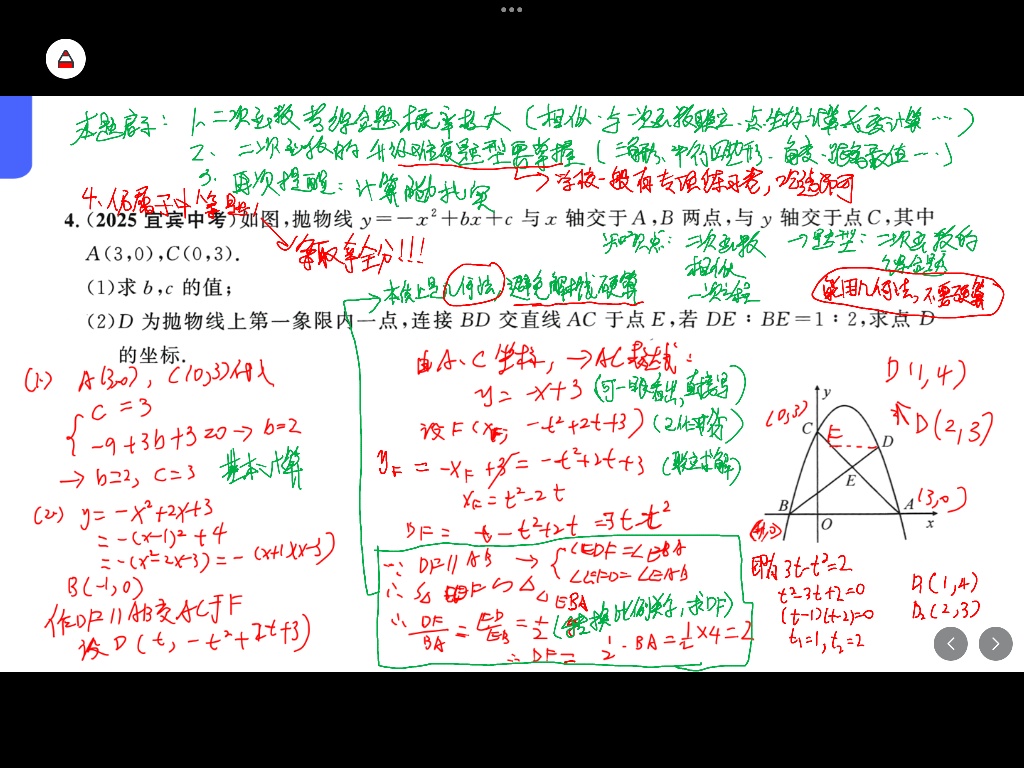 本题启示：1、二次函数考综合题概率极大（相似、与一次函数联立、点坐标计算、长度计算…）
2、二次函数的升级难度题型要掌握（三角形、平行四边形、角度、距离最值…）
→学校一般有专项练习卷，吃透即可
3、再次提醒：计算的扎实
4.
争取拿全分!!!
4.(2025 宜宾中考)如图,抛物线 y=－x²+bx+c 与 x 轴交于 A,B 两点,与 y 轴交于点 C,其中
A(3,0),C(0,3).
知识点：二次函数 →题型：二次函数的
相似
综合题
(1)求 b,c 的值；
本质上是几何法，避免解析硬算
采用几何法,不要硬算
(2)D 为抛物线上第一象限内一点,连接 BD 交直线 AC 于点 E,若 DE∶BE=1∶2,求点 D
的坐标.
(1) A(3,0), C(0,3)代入
{ c=3
-9+3b+3=0→b=2
→b=2, c=3
基本计算
(2) y=-x²+2x+3
=-(x-1)²+4
=-(x²-2x-3)=-(x+1)(x-3)
B(-1,0)
作DF∥AB交AC于F
设D(t, -t²+2t+3)
由A、C坐标,→AC表达式：
y=-x+3 (可一眼看出,直接写)
设F(x_F, -t²+2t+3)
y_F=-x_F+3=-t²+2t+3 (联立求解)
x_F=t²-2t
DF=t-t²+2t=3t-t²
∵DF∥AB→{∠EDF=∠EBA
∠EFD=∠EAB
∴△EDF∽△EBA
∴DF/BA=ED/EB=1/2 (转换比例关系,求DF)
∴DF=1/2·BA=1/2×4=2
D(1,4)
或D(2,3)
y
(0,3)
C
F
D
E
B
A
(3,0)
(-1,0)
O
x
即有3t-t²=2
t²-3t+2=0
(t-1)(t-2)=0
t₁=1, t₂=2
D₁(1,4)
D₂(2,3)